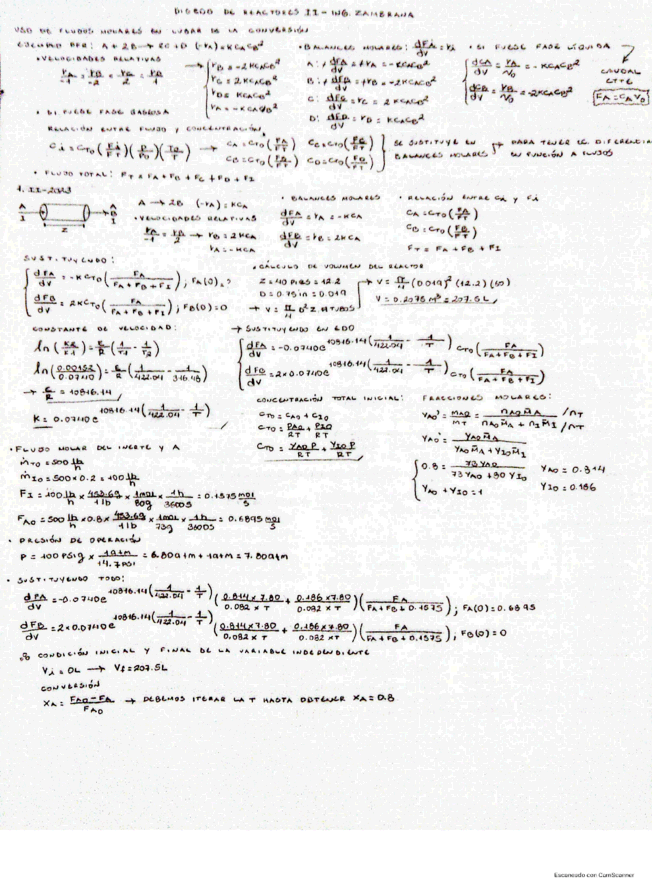 DISEÑO DE REACTORES II - ING. ZAMBRANA
USO DE FLUJOS MOLARES EN LUGAR DE LA CONVERSIÓN
EJEMPLO PFR: A + 2B → 2C + D (-rA) = KCACB²
• VELOCIDADES RELATIVAS
rA/-1 = rB/-2 = rC/2 = rD/1 →
rB = -2KCACB²
rC = 2KCACB²
rD = KCACB²
rA = -KCACB²
• BALANCES MOLARES: dFi/dV = ri
A: dFA/dV = rA = -KCACB²
B: dFB/dV = rB = -2KCACB²
C: dFC/dV = rC = 2KCACB²
D: dFD/dV = rD = KCACB²
• SI FUESE FASE LÍQUIDA
dCA/dV = rA/V0 = -KCACB²
dCB/dV = rB/V0 = -2KCACB²
CAUDAL CTTE
FA = CA V0
• SI FUESE FASE GASEOSA
RELACIÓN ENTRE FLUJO Y CONCENTRACIÓN
Ci = CT0 (Fi/FT)(P/P0)(T0/T) → CA = CT0 (FA/FT) CC = CT0 (FC/FT)
CB = CT0 (FB/FT) CD = CT0 (FD/FT)
SE SUSTITUYE EN BALANCES MOLARES → PARA TENER EC DIFERENCIA EN FUNCIÓN A FLUJOS
• FLUJO TOTAL: FT = FA + FB + FC + FD + FI
1. II-2023
A I → Z → A B I
A → 2B (-rA) = KCA
• VELOCIDADES RELATIVAS
rA/-1 = rB/2 → rB = 2KCA
rA = -KCA
• BALANCES MOLARES
dFA/dV = rA = -KCA
dFB/dV = rB = 2KCA
• RELACIÓN ENTRE Ci Y Fi
CA = CT0 (FA/FT)
CB = CT0 (FB/FT)
FT = FA + FB + FI
SUSTITUYENDO:
dFA/dV = -KCT0 (FA/(FA + FB + FI)); FA(0) = ?
dFB/dV = 2KCT0 (FA/(FA + FB + FI)); FB(0) = 0
• CÁLCULO DE VOLUMEN DEL REACTOR
Z = 40 PIES = 12.2
D = 0.75 in = 0.019
→ V = π/4 D² Z · # TUBOS
→ V = π/4 (0.019)² (12.2) (60)
V = 0.2075 M³ = 207.5 L
CONSTANTE DE VELOCIDAD:
ln(K2/K1) = E/R (1/T1 - 1/T2)
ln(0.00152/0.0740) = E/R (1/422.04 - 1/366.48)
→ E/R = 10816.14
K = 0.0740e^10816.14(1/422.04 - 1/T)
→ SUSTITUYENDO EN EDO
dFA/dV = -0.0740e^10816.14(1/422.04 - 1/T) CT0 (FA/(FA+FB+FI))
dFB/dV = 2×0.0740e^10816.14(1/422.04 - 1/T) CT0 (FA/(FA+FB+FI))
CONCENTRACIÓN TOTAL INICIAL:
CT0 = CA0 + CI0
CT0 = PA0/RT + PI0/RT
CT0 = YA0 P/RT + YI0 P/RT
FRACCIONES MOLARES:
YA0' = mA0/mT = nA0 M̄A/(nA0 M̄A + nI M̄I) /nT /nT
YA0' = YA0 M̄A/(YA0 M̄A + YI0 M̄I)
0.8 = 73 YA0/(73 YA0 + 80 YI0)
YA0 + YI0 = 1
YA0 = 0.814
YI0 = 0.186
• FLUJO MOLAR DEL INERTE Y A
ṁT0 = 500 lb/h
ṁI0 = 500 × 0.2 = 100 lb/h
FI = 100 lb/h × 453.6g/1 lb × 1mol/80g × 1h/3600s = 0.1575 mol/s
FA0 = 500 lb/h × 0.8 × 453.6g/1 lb × 1mol/73g × 1h/3600s = 0.6895 mol/s
• PRESIÓN DE OPERACIÓN
P = 100 PSIg × 1atm/14.7psi = 6.80atm + 1atm = 7.80atm
• SUSTITUYENDO TODO:
dFA/dV = -0.0740e^10816.14(1/422.04 - 1/T) (0.814×7.80/0.082×T + 0.186×7.80/0.082×T)(FA/(FA+FB+0.1575)); FA(0) = 0.6895
dFB/dV = 2×0.0740e^10816.14(1/422.04 - 1/T) (0.814×7.80/0.082×T + 0.186×7.80/0.082×T)(FA/(FA+FB+0.1575)); FB(0) = 0
CONDICIÓN INICIAL Y FINAL DE LA VARIABLE INDEPENDIENTE
Vi = 0L → Vf = 207.5L
CONVERSIÓN
XA = (FA0 - FA)/FA0 → DEBEMOS ITERAR LA T HASTA OBTENER XA = 0.8
Escaneado con CamScanner